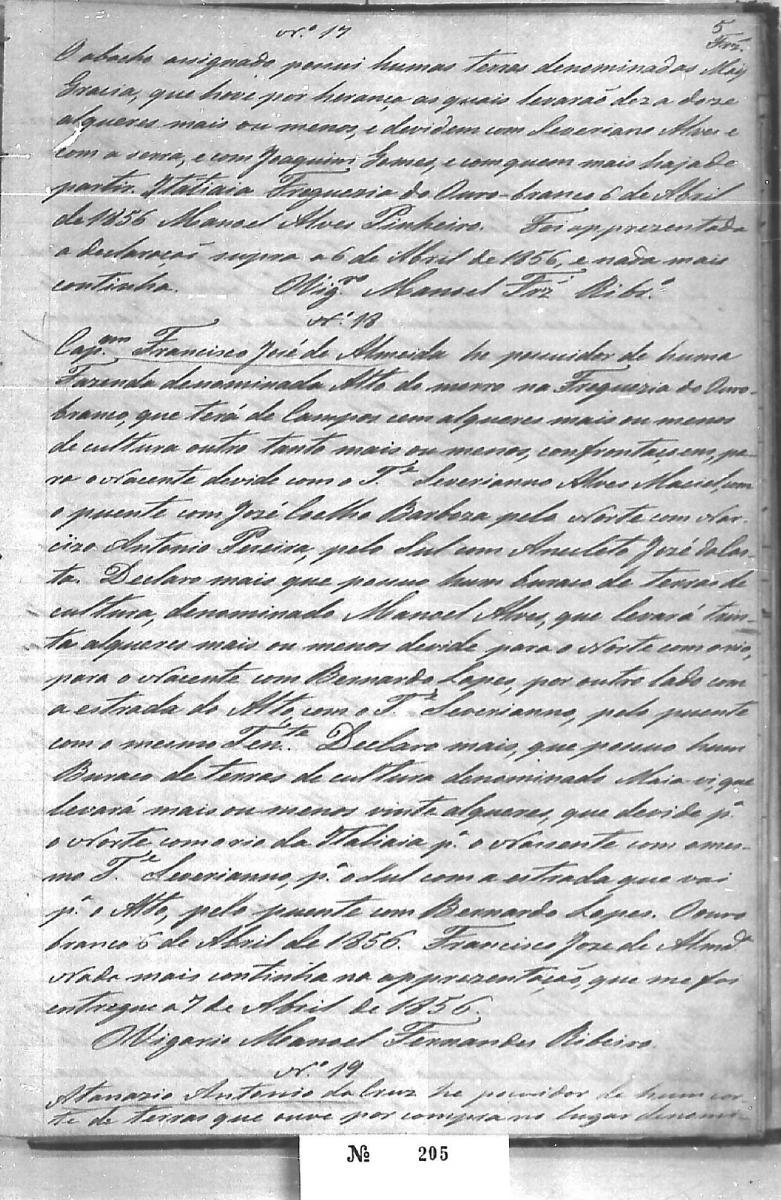 Nº 17
5
Frz.
O abacho assignado, possui humas terras denominadas Maij
Gracia, que hove por herança as quais levaraõ dez a doze
alqueres mais ou menos, e devidem com Severiano Alves e
com a serra, e com Joaquim Gomes, e com quem mais haja de
partir. Itatiaia Freguezia do Ouro-branco 6 de Abril
de 1856 Manoel Alves Pinheiro. Foi apprezentada
a declaraçaõ supra a 6 de Abril de 1856, e nada mais
continha. Vigrº Manoel Frz Ribrº
Nº 18
Capᵃᵐ Francisco José de Almeida he possuidor de huma
Fazenda denominada Alto do morro na Freguezia do Ouro-
branco, que terá de Campos cem alqueres mais ou menos
de cultura outro tanto mais ou menos, confrontaçoens, pa-
ra o Nacente devide com o Tᵉ Severianno Alves Maciel, com
o puente com José Coelho Barboza pelo Norte com Nar-
cizo Antonio Pereira, pelo Sul com Anacleto José da Cos-
ta. Declaro mais que possuo hum buraco de terras de
cultura, denominado Manoel Alves, que levará trin-
ta alqueres mais ou menos devide para o Norte com o rio,
para o Nacente com Bernardo Lopes, por outro lado com
a estrada do Alto, com o Tᵉ Severianno, pelo puente
com o mesmo Tenᵗᵉ. Declaro mais, que possuo hum
Buraco de terras de cultura denominado que
levará mais ou menos vinte alqueres, que devide pª
o Norte com o rio da Itatiaia pª o Nassente com o mes-
mo Tᵉ Severianno, pª o Sul com a estrada que vai
pª o Alto, pelo puente com Bernardo Lopes. Ouro
branco 6 de Abril de 1856. Francisco Joze de Almdª
Nada mais continha na apprezentaçaõ, que me foi
entregue a 7 de Abril de 1856.
Vigario Manoel Fernandes Ribeiro.
Nº 19
Atanazio Antonio da Cruz he possuidor de hum cor-
te de terras que ouve por compra no lugar denomi-
Nº 205